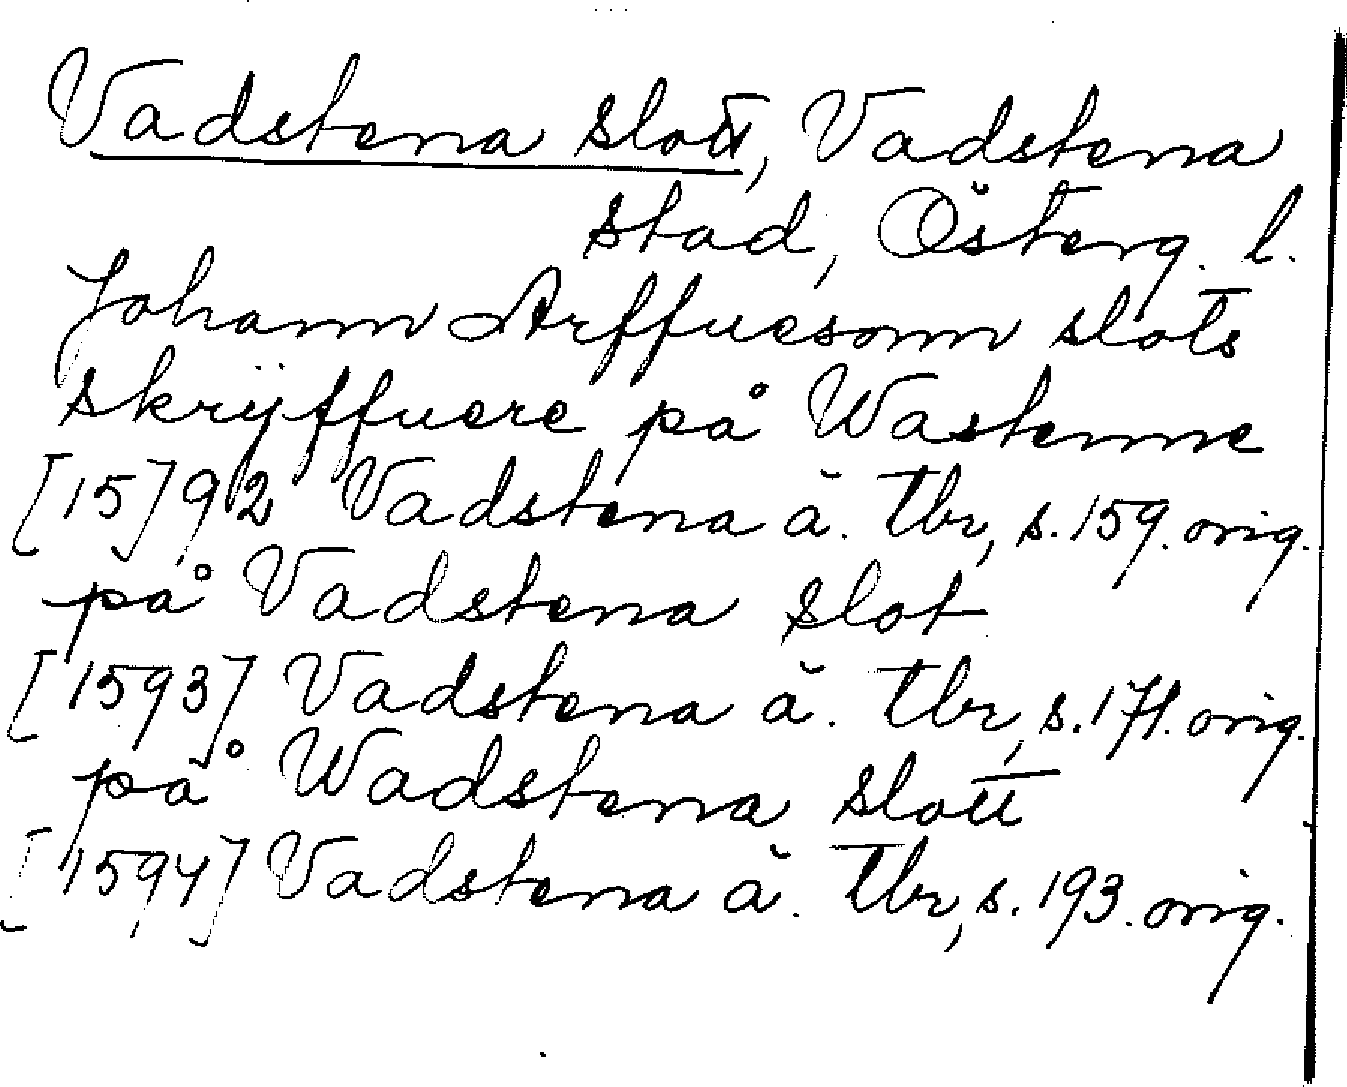 Vadstena slott, Vadstena
stad, Österg. l.
Johann Arffuesonn slots
skrÿffuere på Wastenne
[15]92 Vadstena ä. tbr, s. 159. orig.
på Vadstena slot
[1593] Vadstena ä. tbr, s. 171. orig.
på Wadstena slott
[1594] Vadstena ä. tbr, s. 193. orig.